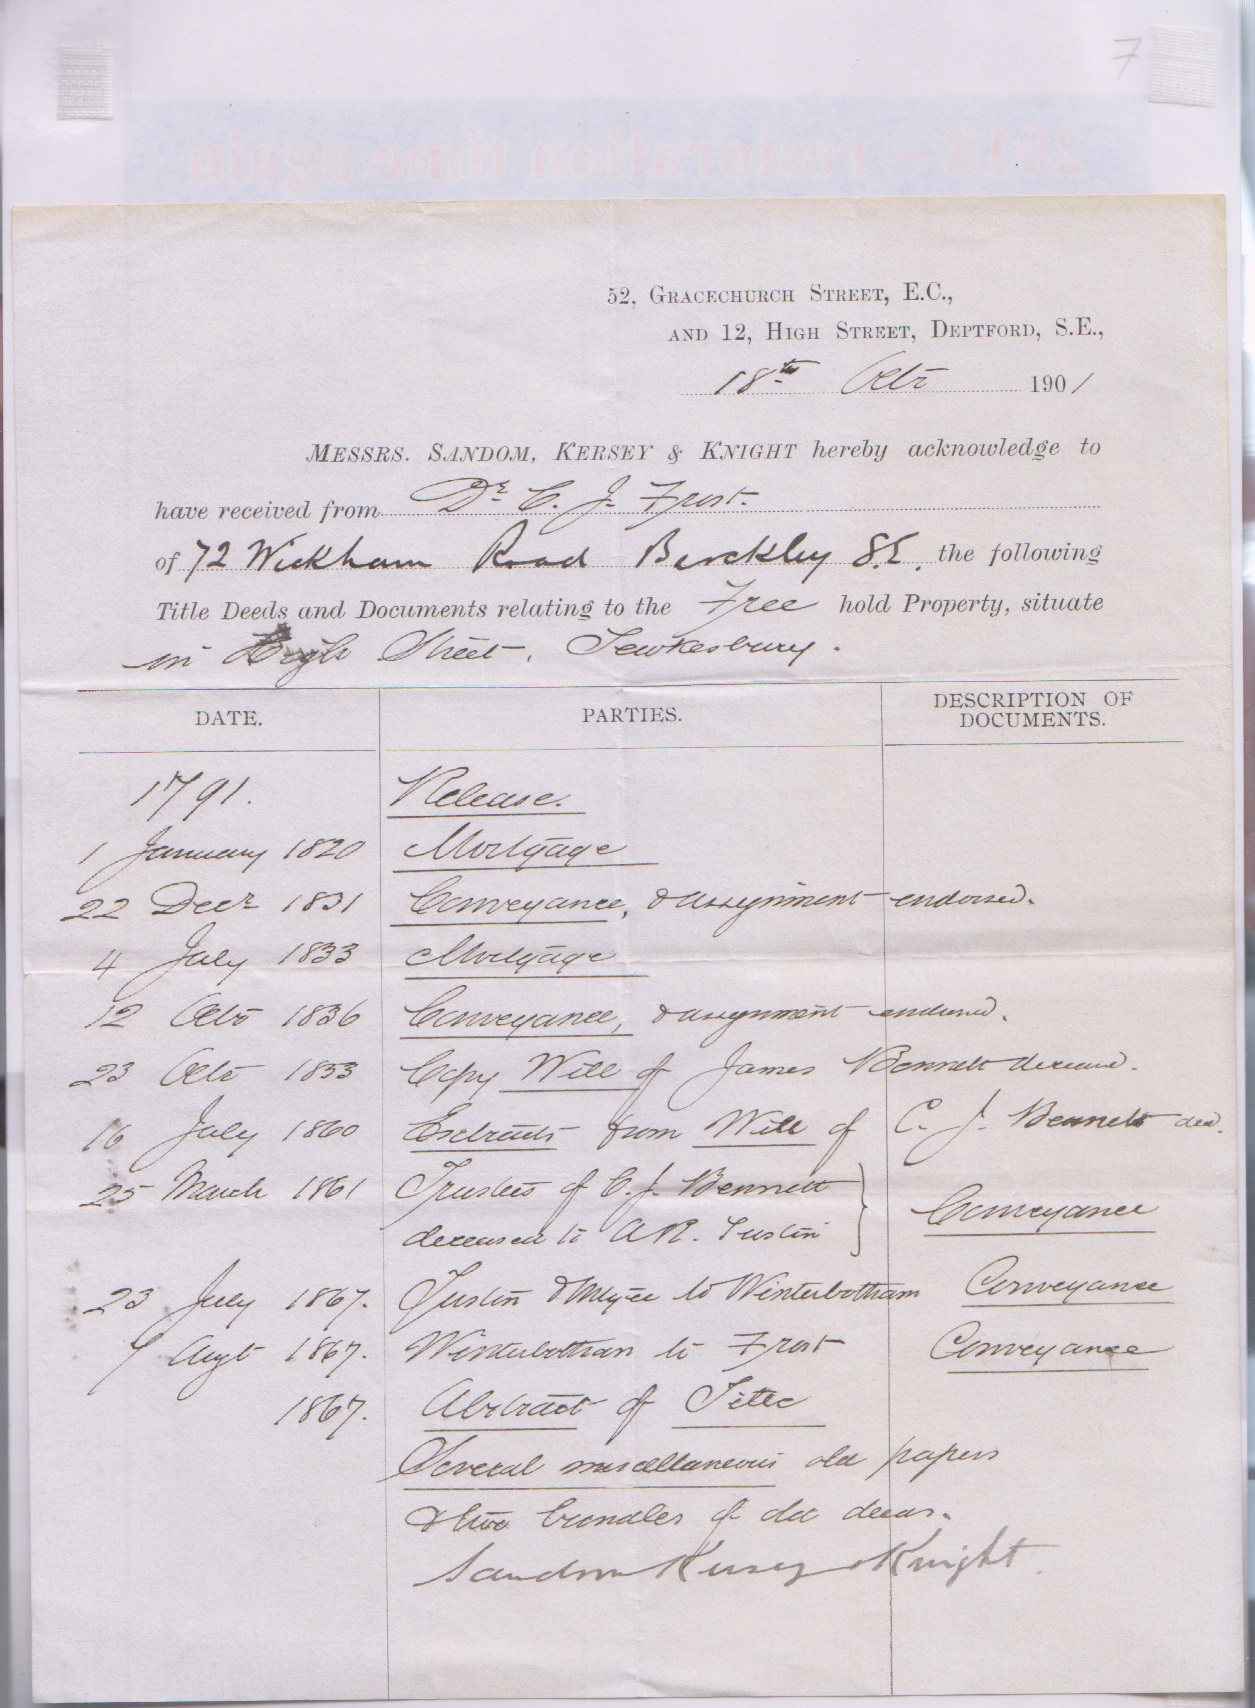 7
2018 – restoration time again
52, GRACECHURCH STREET, E.C.,
AND 12, HIGH STREET, DEPTFORD, S.E.,
18th Octr 1901
MESSRS. SANDOM, KERSEY & KNIGHT hereby acknowledge to
have received from Dr. C. J. Frost.
of 72 Wickham Road Brockley S.E. the following
Title Deeds and Documents relating to the Free hold Property, situate
in High Street, Tewkesbury.
DATE. PARTIES. DESCRIPTION OF DOCUMENTS.
1791. Release.
1 January 1820 Mortgage
22 Decr 1831 Conveyance, & assignment endorsed.
4 July 1833 Mortgage
12 Octr 1836 Conveyance, & assignment endorsed.
23 Octr 1853 Copy Will of James Bennett deceased.
16 July 1860 Extracts from Will of C. J. Bennett decd.
25 March 1861 Trustees of C. J. Bennett
deceased to A R. Tustin } Conveyance
23 July 1867. Tustin & Mtgee to Winterbotham Conveyance
7 Augt 1867. Winterbotham to Frost Conveyance
1867. Abstract of Title
Several miscellaneous old papers
& two bundles of old deeds.
Sandom Kersey & Knight.